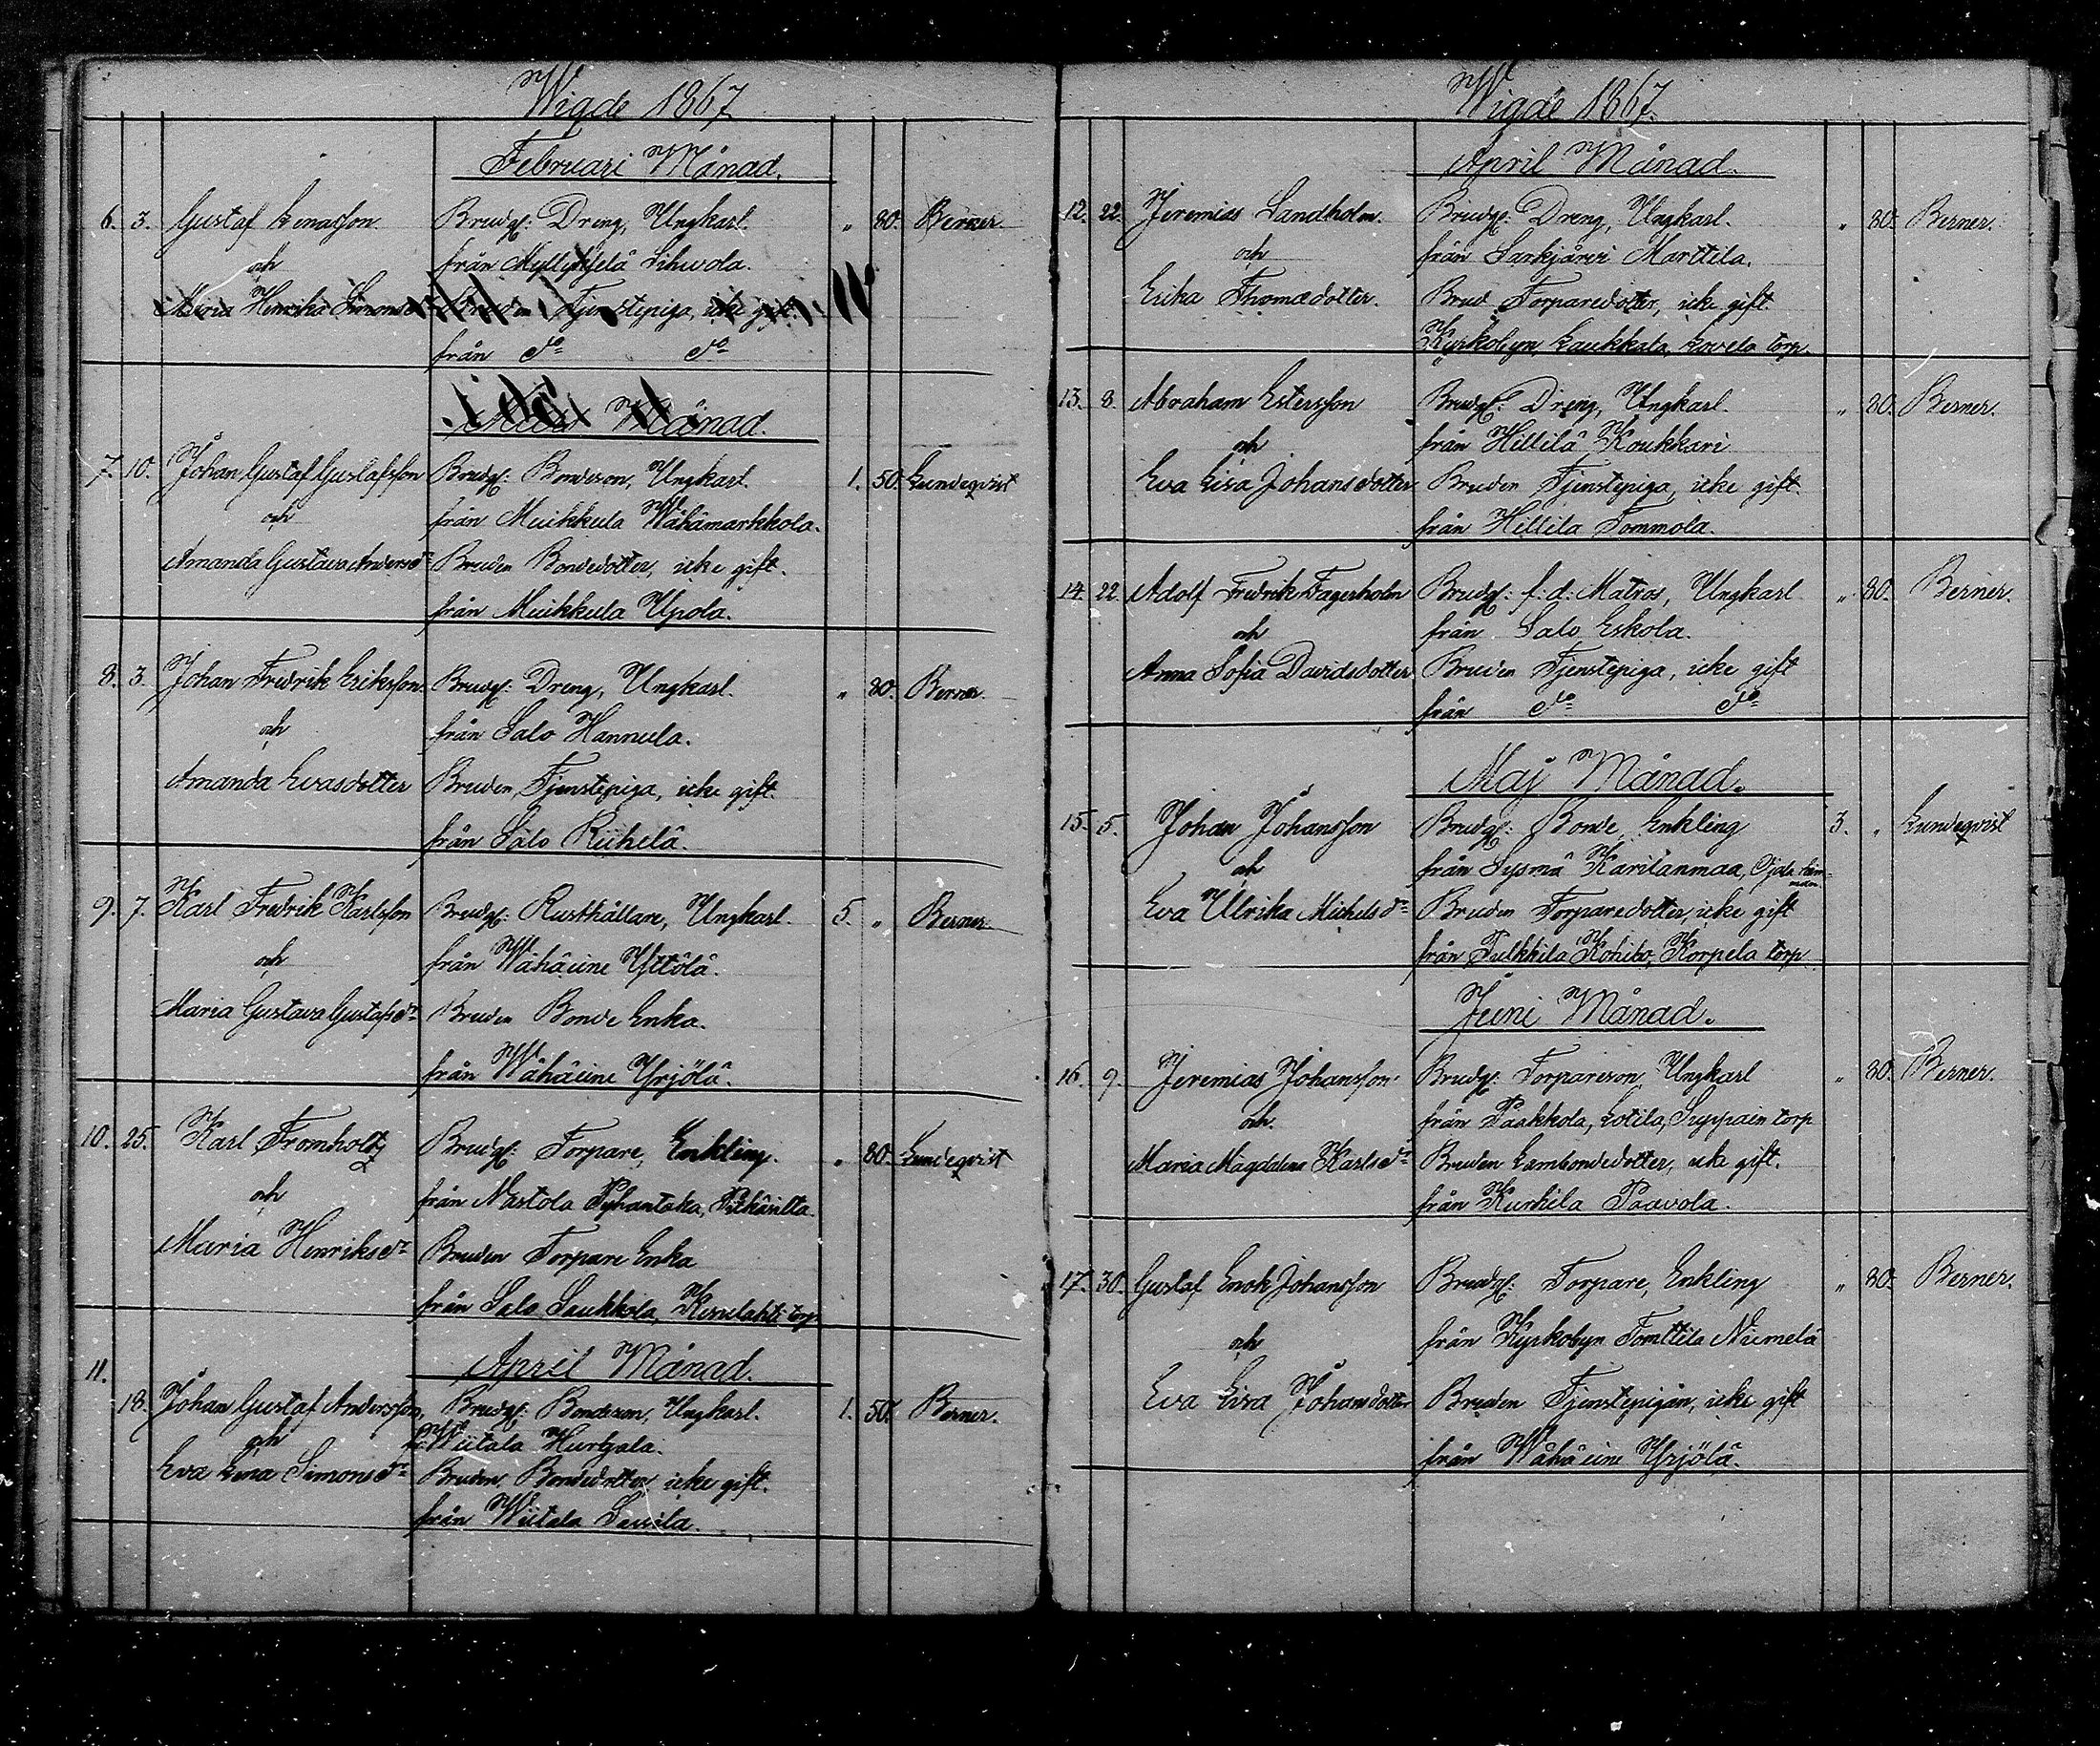 Wigde 1867
Februari Månad.
6. 3. Gustaf Lenasson Brudg: Dreng, Ungkarl. " 80. Berner.
och från Myllykselä Sihvola.
Maria Henrika Simonsdr Bruden Tjenstepiga, icke gift.
från do do
Månad.
7. 10. Johan Gustaf Gustafsson Brudg: Bondeson, Ungkarl. 1. 50. Lundeqvist
och från Muikkula Wähämarkkola.
Amanda Gustava Andersdr Bruden Bondedotter, icke gift.
från Muikkula Upola.
8. 3. Johan Fredrik Eriksson Brudg: Dreng, Ungkarl. " 80. Berner.
och från Salo Hannula.
Amanda Evasdotter Bruden, Tjenstepiga, icke gift.
från Salo Riihelä.
9. 7. Karl Fredrik Karlsson Brudg: Rusthållare, Ungkarl. 5. " Berner.
och från Wähäeine Yttölä.
Maria Gustava Gustafsdr Bruden Bonde Enka.
från Wähäeine Yrjölä.
10. 25. Karl Fromholtz Brudg: Torpare, Enkling. " 80. Lundeqvist
och från Nastola Pyhäntaka, Pitkäsilta.
Maria Henriksdr Bruden Torpare Enka
från Salo Laukkala, torp
April Månad.
11.
18. Johan Gustaf Andersson, Brudg: Bondeson, Ungkarl. 1. 50. Berner.
och fr: Wiitala Hurtjala.
Eva Lena Simonsdr Bruden, Bondedotter icke gift.
från Wiitala Sassila.
Wigde 1867.
April Månad.
12. 22. Jeremias Sandholm. Brudg: Dreng, Ungkarl. " 80. Berner.
och från Sarkjärvi Marttila.
Erika Thomædotter. Brud. Torparedotter, icke gift.
Kyrkobyn, Laukkala, Lovela torp.
13. 8. Abraham Estersson Brudg: Dreng, Ungkarl. " 80. Berner.
och från Hillilä Koukkari
Eva Lisa Johansdotter Bruden Tjenstepiga, icke gift.
från Hillila Tommola.
14. 22. Adolf Fredrik Fagerholm Brudg: f: d: Matros, Ungkarl " 80. Berner.
och från Salo Eskola.
Anna Sofia Davidsdotter Bruden Tjenstepiga, icke gift
från do do
Maj Månad.
15. 5. Johan Johansson Brudg: Bonde Enkling 3. " Lundeqvist
och från Sysmä Karilanmaa, Ojala hemman
Eva Ulrika Michelsdr Bruden Torparedotter, icke gift
från Pulkkila Kohibo, Korpela torp
Juni Månad.
16. 9. Jeremias Johansson. Brudg: Torpareson, Ungkarl " 80. Berner.
och. från Paakkola, Lotila, Suppain torp
Maria Magdalena Karlsdr Bruden Lambondedotter, icke gift.
från Kurhila Paavola.
17. 30. Gustaf Enok Johansson Brudg: Torpare, Enkling " 80. Berner.
och från Kyrkobyn Tomttila Niemelä
Eva Lisa Johansdotter Bruden Tjenstepigan, icke gift
från Wähäeine Yrjölä.